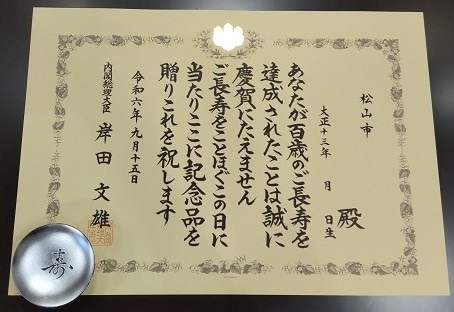 松山市
殿
大正十三年 月 日生
あなたが百歳のご長寿を
達成されたことは誠に
慶賀にたえません
ご長寿をことほぐこの日に
当たりここに記念品を
贈りこれを祝します
令和六年九月十五日
内閣総理大臣 岸田文雄
寿